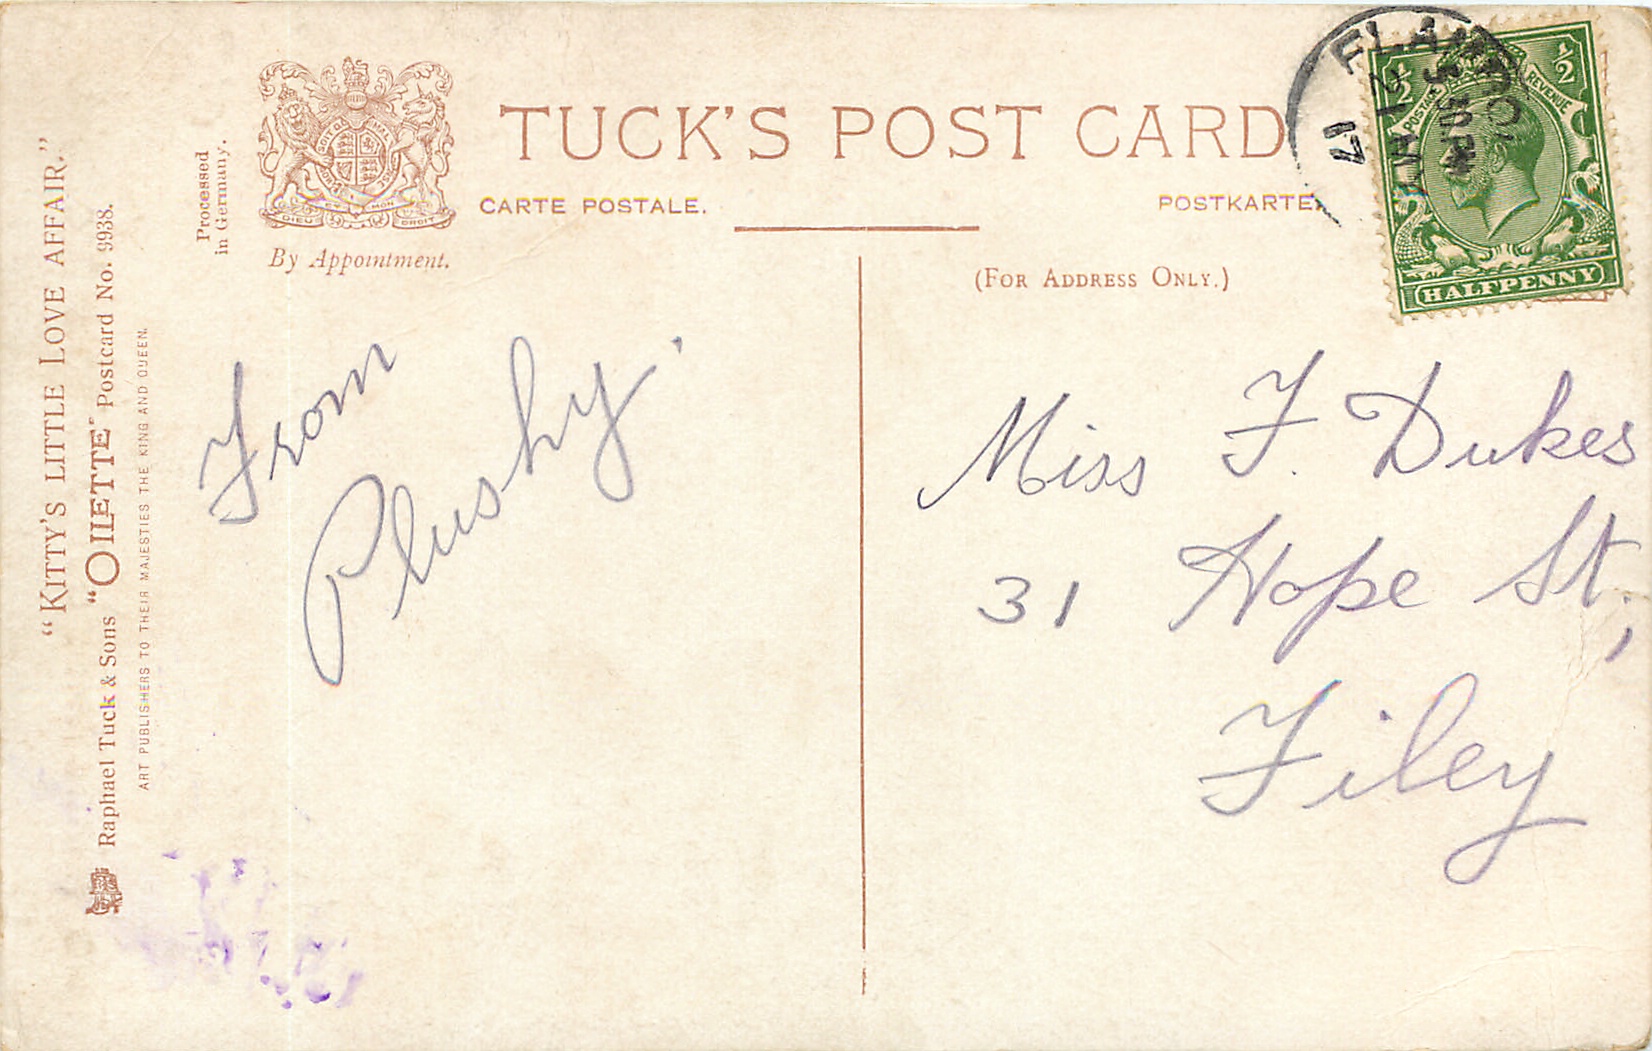 "KITTY'S LITTLE LOVE AFFAIR."
Raphael Tuck & Sons "OILETTE" Postcard No. 9938.
ART PUBLISHERS TO THEIR MAJESTIES THE KING AND QUEEN.
Processed
in Germany.
DIEU ET MON DROIT
By Appointment.
TUCK'S POST CARD
CARTE POSTALE.
POSTKARTE.
(FOR ADDRESS ONLY.)
5 15 PM
17
½ ½
POSTAGE REVENUE
HALFPENNY
From
Plushy.
Miss F. Dukes
31 Hope St,
Filey